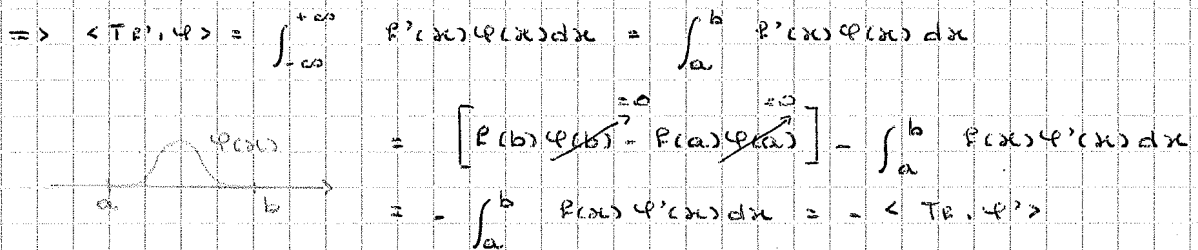 => < Tf', φ > = ∫_{-∞}^{+∞} f'(x) φ(x) dx = ∫_a^b f'(x) φ(x) dx
= [ f(b) φ(b) - f(a) φ(a) ] - ∫_a^b f(x) φ'(x) dx
=0 =0
φ(x)
a b
= - ∫_a^b f(x) φ'(x) dx = - < Tf, φ' >